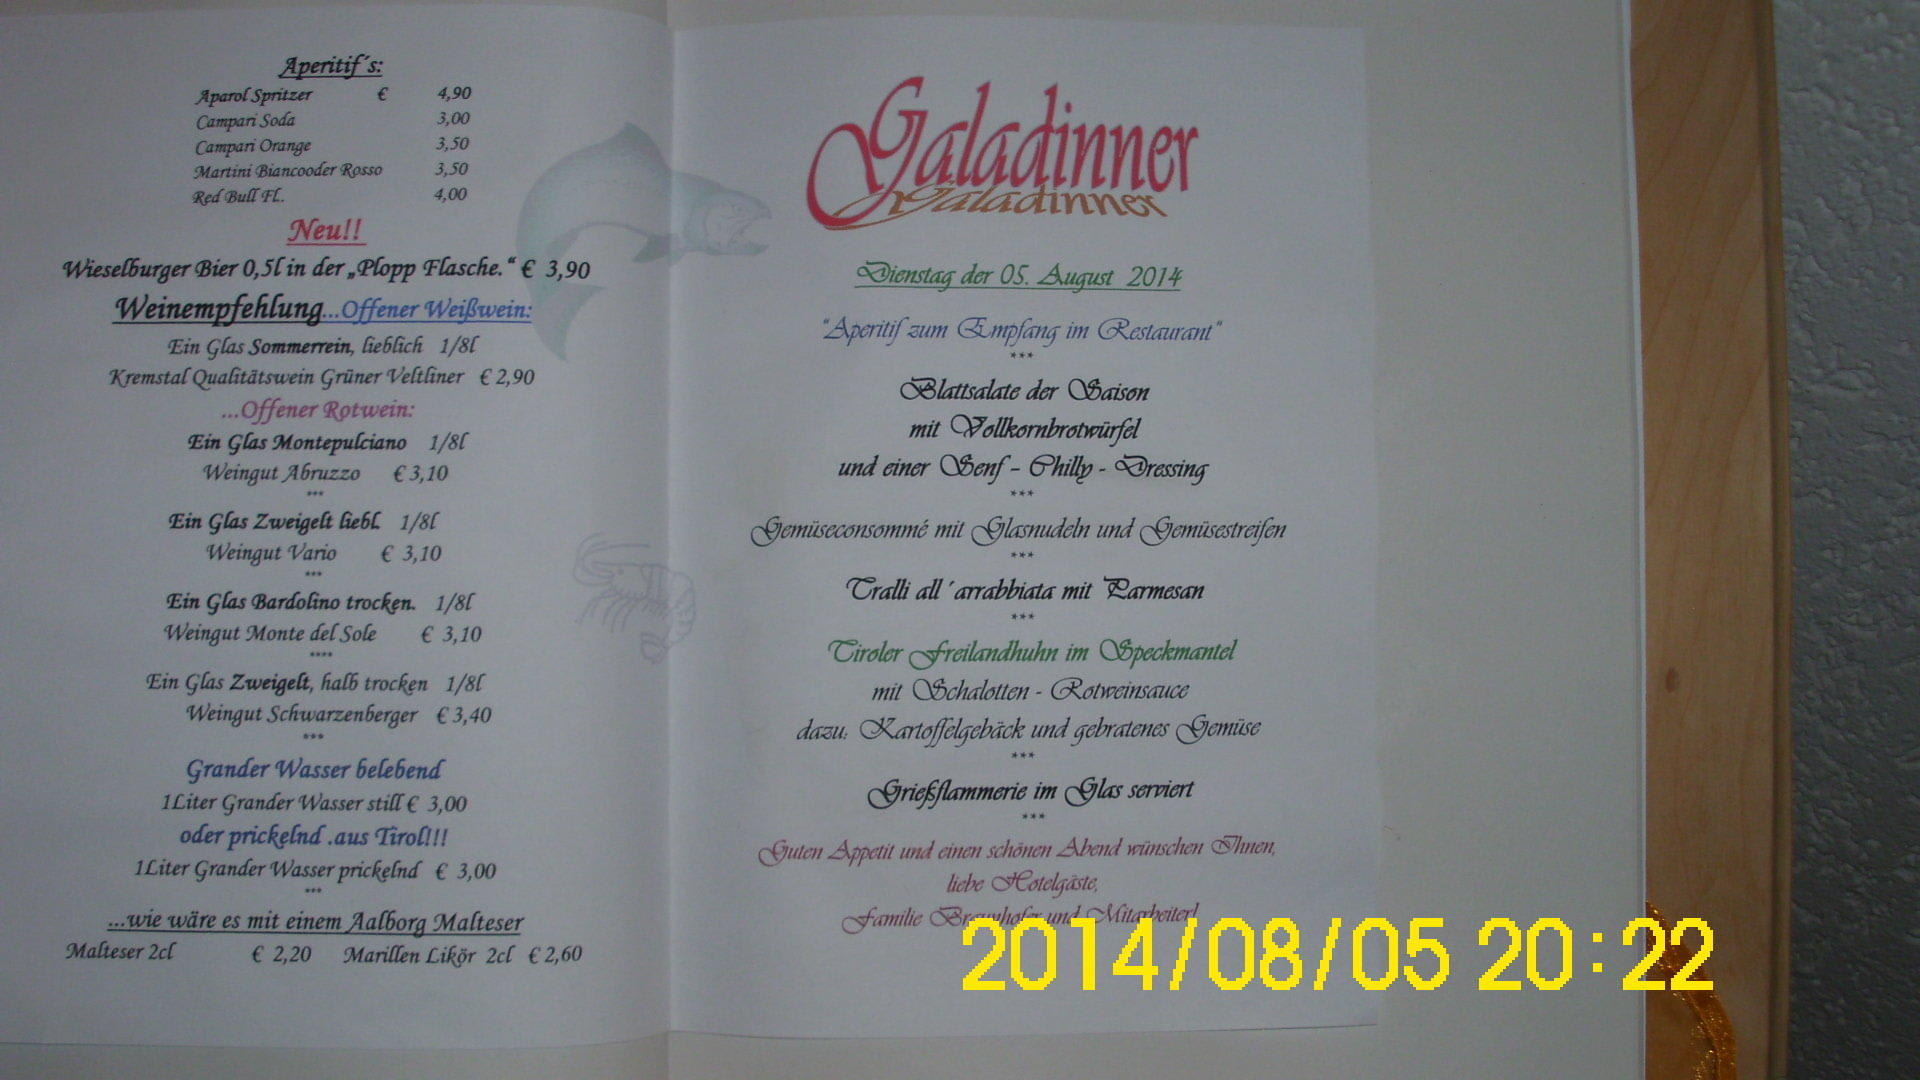 Aperitif´s:
Aparol Spritzer € 4,90
Campari Soda 3,00
Campari Orange 3,50
Martini Biancooder Rosso 3,50
Red Bull Fl.. 4,00
Neu!!
Wieselburger Bier 0,5l in der „Plopp Flasche.“ € 3,90
Weinempfehlung...Offener Weißwein:
Ein Glas Sommerrein, lieblich 1/8l
Kremstal Qualitätswein Grüner Veltliner € 2,90
...Offener Rotwein:
Ein Glas Montepulciano 1/8l
Weingut Abruzzo € 3,10
***
Ein Glas Zweigelt liebl. 1/8l
Weingut Vario € 3,10
***
Ein Glas Bardolino trocken. 1/8l
Weingut Monte del Sole € 3,10
****
Ein Glas Zweigelt, halb trocken 1/8l
Weingut Schwarzenberger € 3,40
***
Grander Wasser belebend
1Liter Grander Wasser still € 3,00
oder prickelnd .aus Tirol!!!
1Liter Grander Wasser prickelnd € 3,00
***
...wie wäre es mit einem Aalborg Malteser
Malteser 2cl € 2,20 Marillen Likör 2cl € 2,60
Galadinner
Galadinner
Dienstag der 05. August 2014
"Aperitif zum Empfang im Restaurant"
***
Blattsalate der Saison
mit Vollkornbrotwürfel
und einer Senf – Chilly - Dressing
***
Gemüseconsommé mit Glasnudeln und Gemüsestreifen
***
Tralli all´arrabbiata mit Parmesan
***
Tiroler Freilandhuhn im Speckmantel
mit Schalotten - Rotweinsauce
dazu: Kartoffelgebäck und gebratenes Gemüse
***
Grießflammerie im Glas serviert
***
Guten Appetit und einen schönen Abend wünschen Ihnen,
liebe Hotelgäste,
Familie Braunhofer und Mitarbeiter!
2014/08/05 20:22